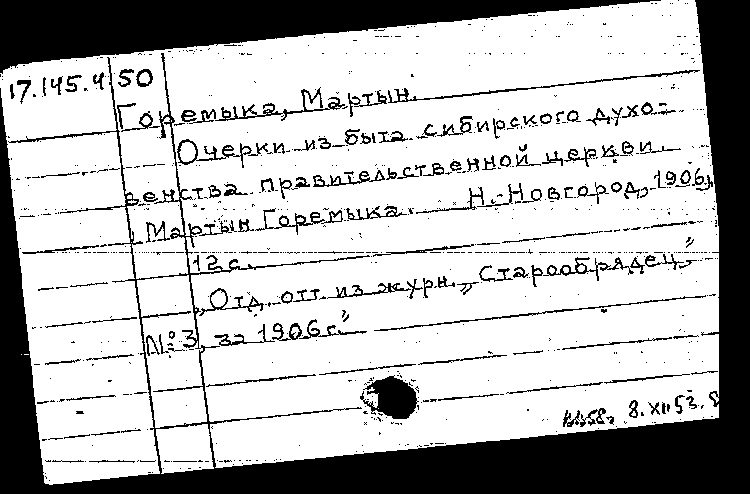 17.145.4.50
Горемыка, Мартын.
Очерки из быта сибирского духо=
венства правительственной церкви.
Мартын Горемыка. Н.-Новгород, 1906,
12 с.
„Отд. отт. из журн. „Старообрядец”
№ 3, за 1906 г.”
8.XII 53.